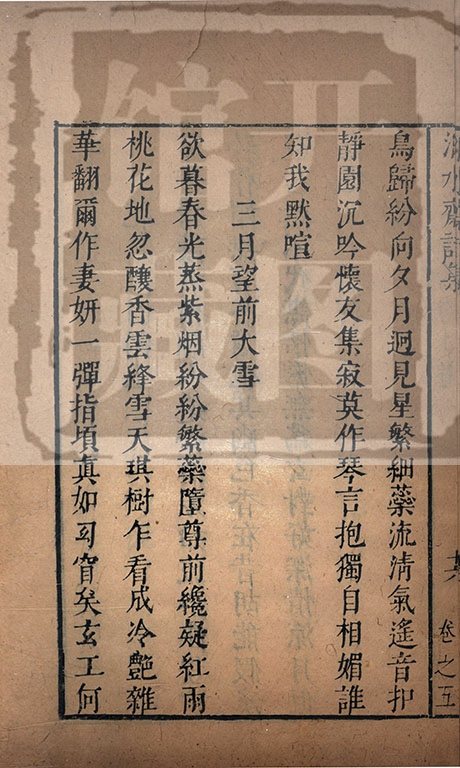 鳥歸紛向夕月迥見星繁細蘂流清氣遙音扣
靜園沉吟懷友集寂莫作琴言抱獨自相媚誰
知我默喧
三月望前大雪
欲暮春光蒸紫烟紛紛繁蘂墮尊前纔疑紅雨
桃花地忽釀香雲絳雪天琪樹乍看成冷艷雜
華翻爾作妻妍一彈指頃真如司窅矣玄工何
卷之五